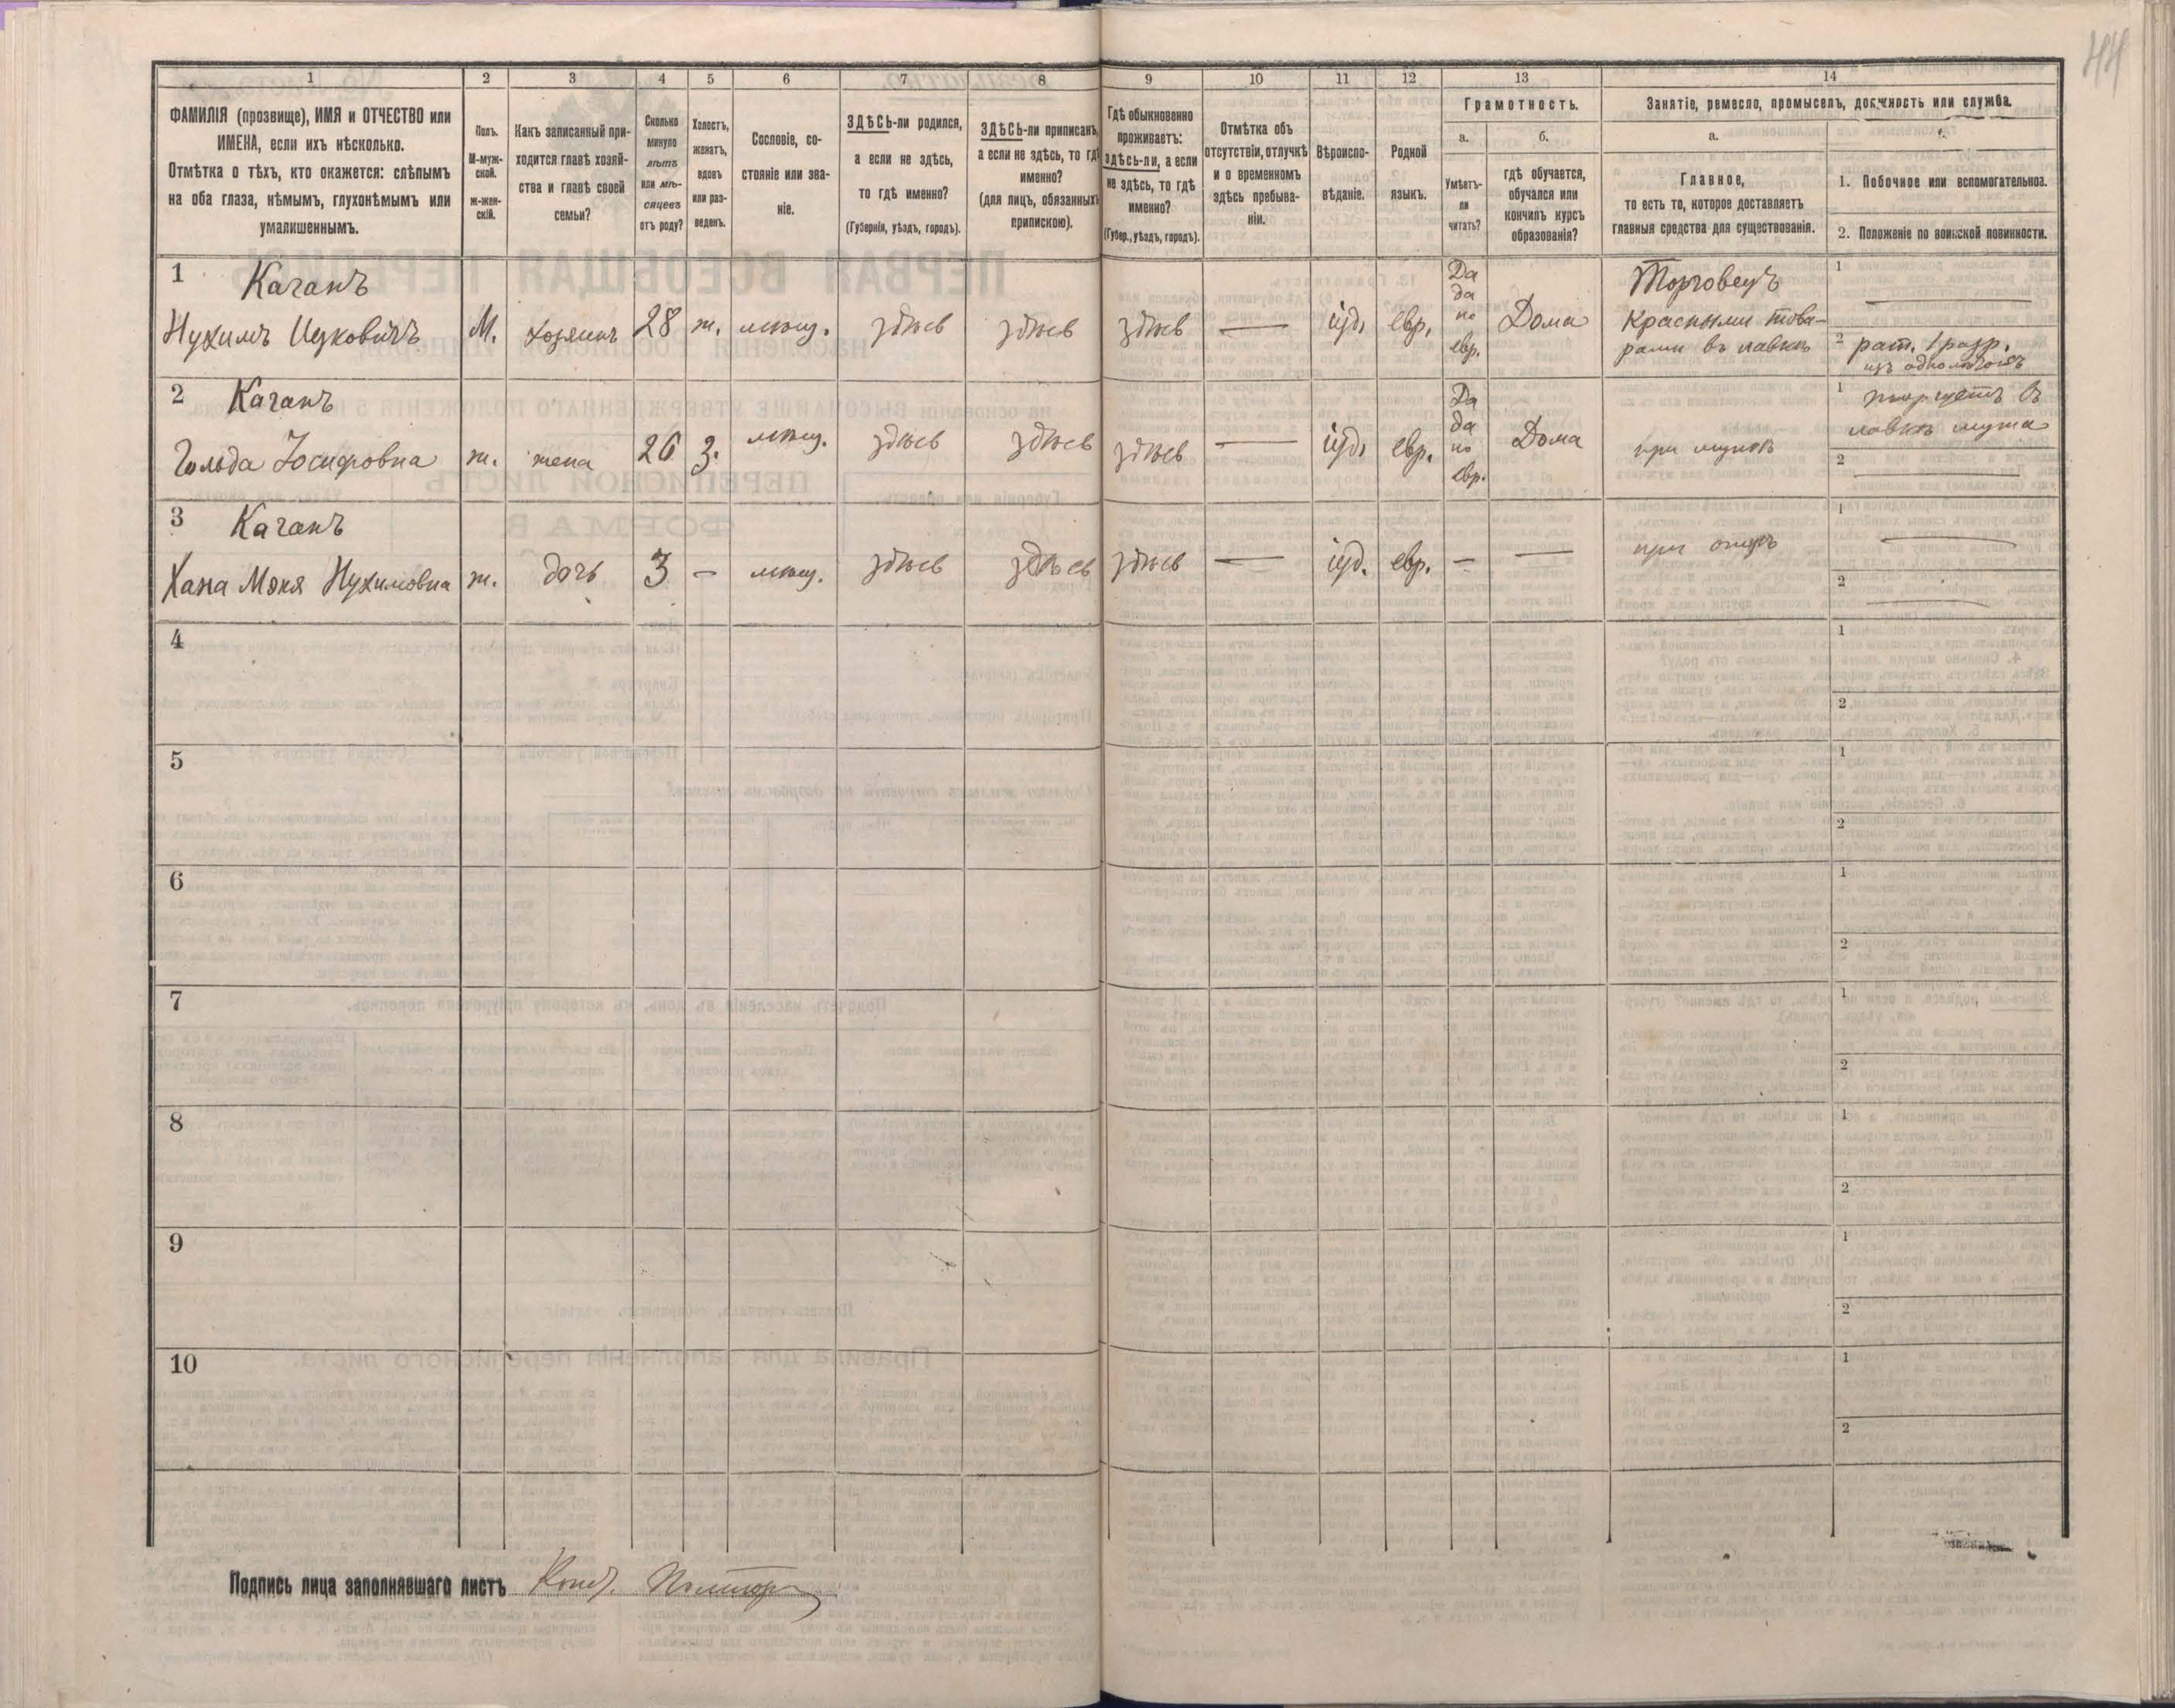 44
1
ФАМИЛІЯ (прозвище), ИМЯ и ОТЧЕСТВО или
ИМЕНА, если ихъ нѣсколько.
Отмѣтка о тѣхъ, кто окажется: слѣпымъ
на оба глаза, нѣмымъ, глухонѣмымъ или
умалишеннымъ.
2
Полъ.
М-муж-
ской.
ж-жен-
скій.
3
Какъ записанный при-
ходится главѣ хозяй-
ства и главѣ своей
семьи?
4
Сколько
минуло
лѣтъ
или мѣ-
сяцевъ
отъ роду?
5
Холостъ,
женатъ,
вдовъ
или раз-
веденъ.
6
Сословіе, со-
стояніе или зва-
ніе.
7
ЗДѢСЬ-ли родился,
а если не здѣсь,
то гдѣ именно?
(Губернія, уѣздъ, городъ).
8
ЗДѢСЬ-ли приписанъ,
а если не здѣсь, то гдѣ
именно?
(для лицъ, обязанныхъ
припискою).
9
Гдѣ обыкновенно
проживаетъ:
здѣсь-ли, а если
не здѣсь, то гдѣ
именно?
(Губер., уѣздъ, городъ).
10
Отмѣтка объ
отсутствіи, отлучкѣ
и о временномъ
здѣсь пребыва-
ніи.
11
Вѣроиспо-
вѣданіе.
12
Родной
языкъ.
13
Грамотность.
а.
Умѣетъ-
ли
читать?
б.
гдѣ обучается,
обучался или
кончилъ курсъ
образованія?
14
Занятіе, ремесло, промыселъ, должность или служба.
а.
Главное,
то есть то, которое доставляетъ
главныя средства для существованія.
б.
1. Побочное или вспомогательное.
2. Положеніе по воинской повинности.
1 Каганъ
Нухимъ Ицковичъ М. хозяинъ 28 ж. мѣщ. здѣсь здѣсь здѣсь — іуд. евр. Да
да
по
евр. Дома Торговецъ
Красными това-
рами въ лавкѣ 1 —
2 рат. 1 разр.
2 Каганъ
Гольда Іосифовна ж. жена 26 З. мѣщ. здѣсь здѣсь здѣсь — іуд. евр. Да
да
по
евр. Дома при мужѣ 1 торгуетъ въ
лавкѣ мужа
2 —
3 Каганъ
Хана Мэкя Нухимовна ж. дочь 3 — мѣщ. здѣсь здѣсь здѣсь — іуд. евр. — — при отцѣ 1 —
2 —
4 1
2
5 1
2
6 1
2
7 1
2
8 1
2
9 1
2
10 1
2
Подпись лица заполнявшаго листъ